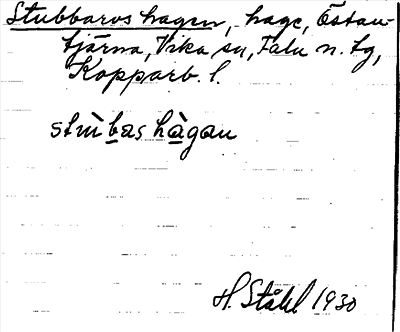 Stubbarvs hagen, hage, Östan-
tjärna, Vika sn, Falu n. tg,
Kopparb. l.
stùbas hàgan
H. Ståhl 1930